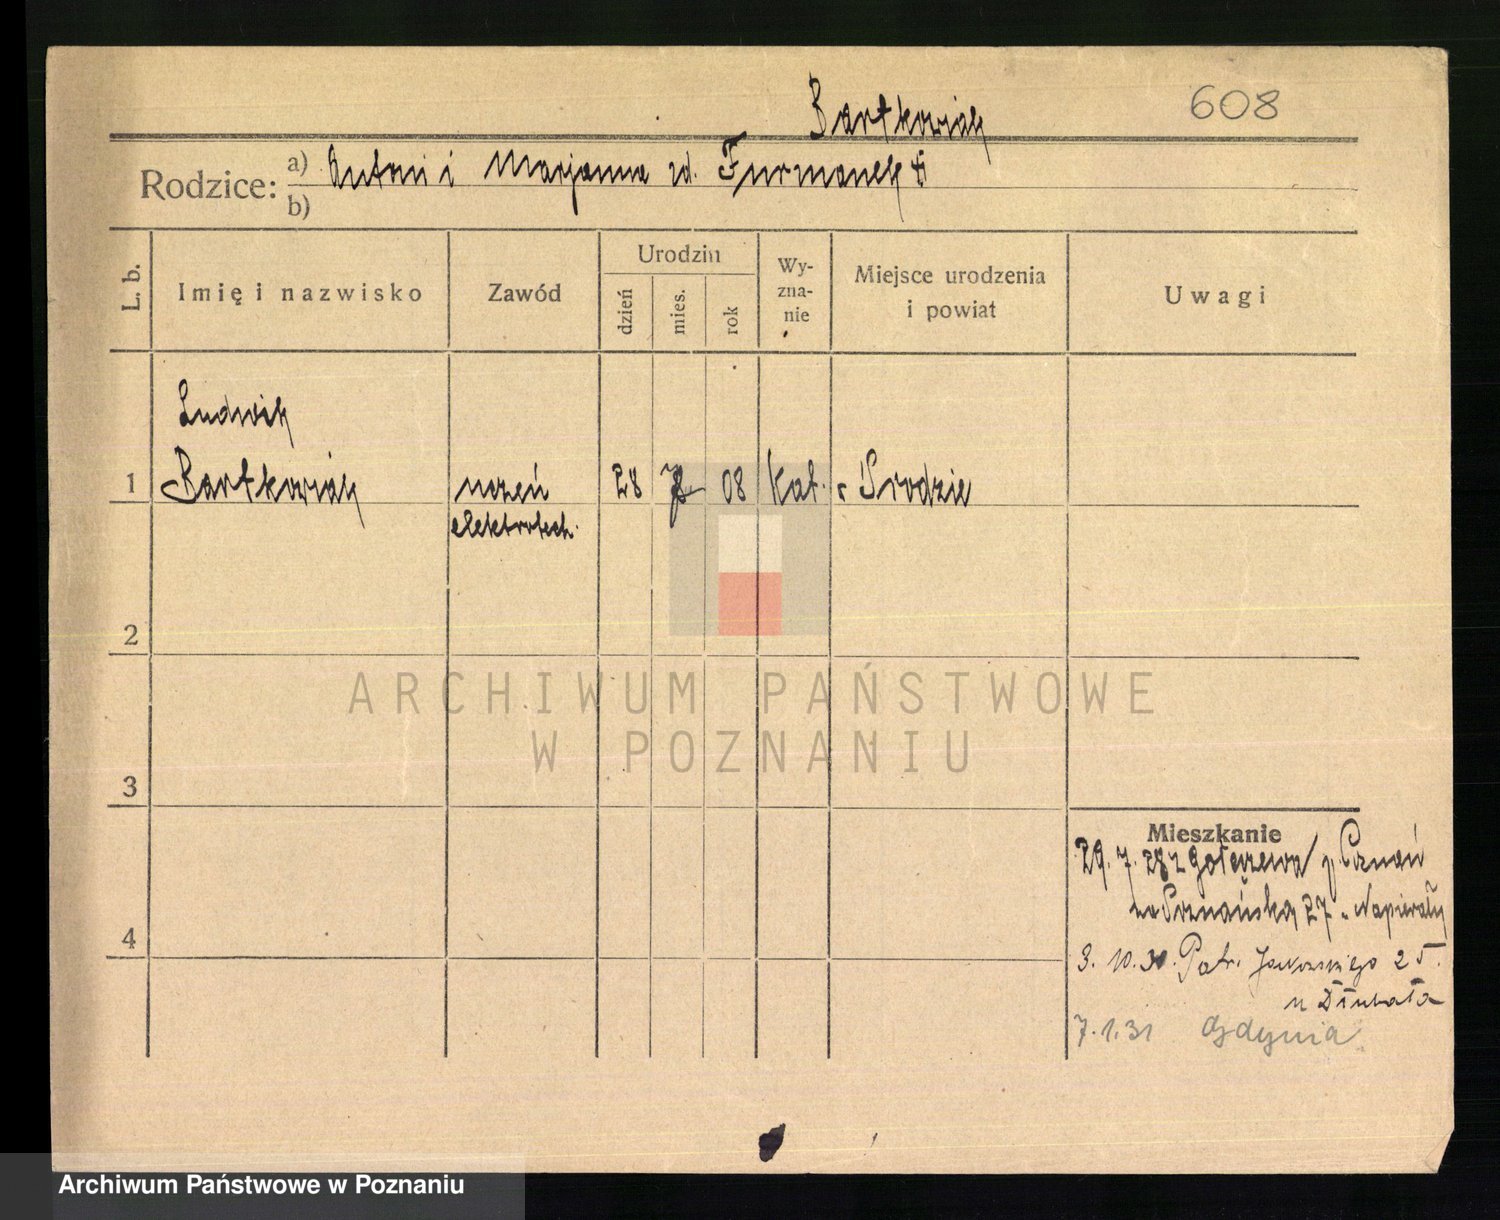 Bartkowiak
608
Rodzice: a) Antoni i Marjanna zd. Furmanek
b)
L. b.
Imię i nazwisko
Zawód
Urodzin
dzień
mies.
rok
Wy-
zna-
nie
Miejsce urodzenia
i powiat
Uwagi
Ludwik
1 Bartkowiak uczeń 28 08 Kat. Środzie
elektrotech.
2
ARCHIWUM PAŃSTWOWE
W POZNANIU
3
Mieszkanie
29. 7. 28 z Golęczewa p. Poznań
Poznańska 27 Napierały
4
3. 10. 30. Patr. Jackowskiego 25.
u Dłubała
7.1.31 Gdynia
Archiwum Państwowe w Poznaniu